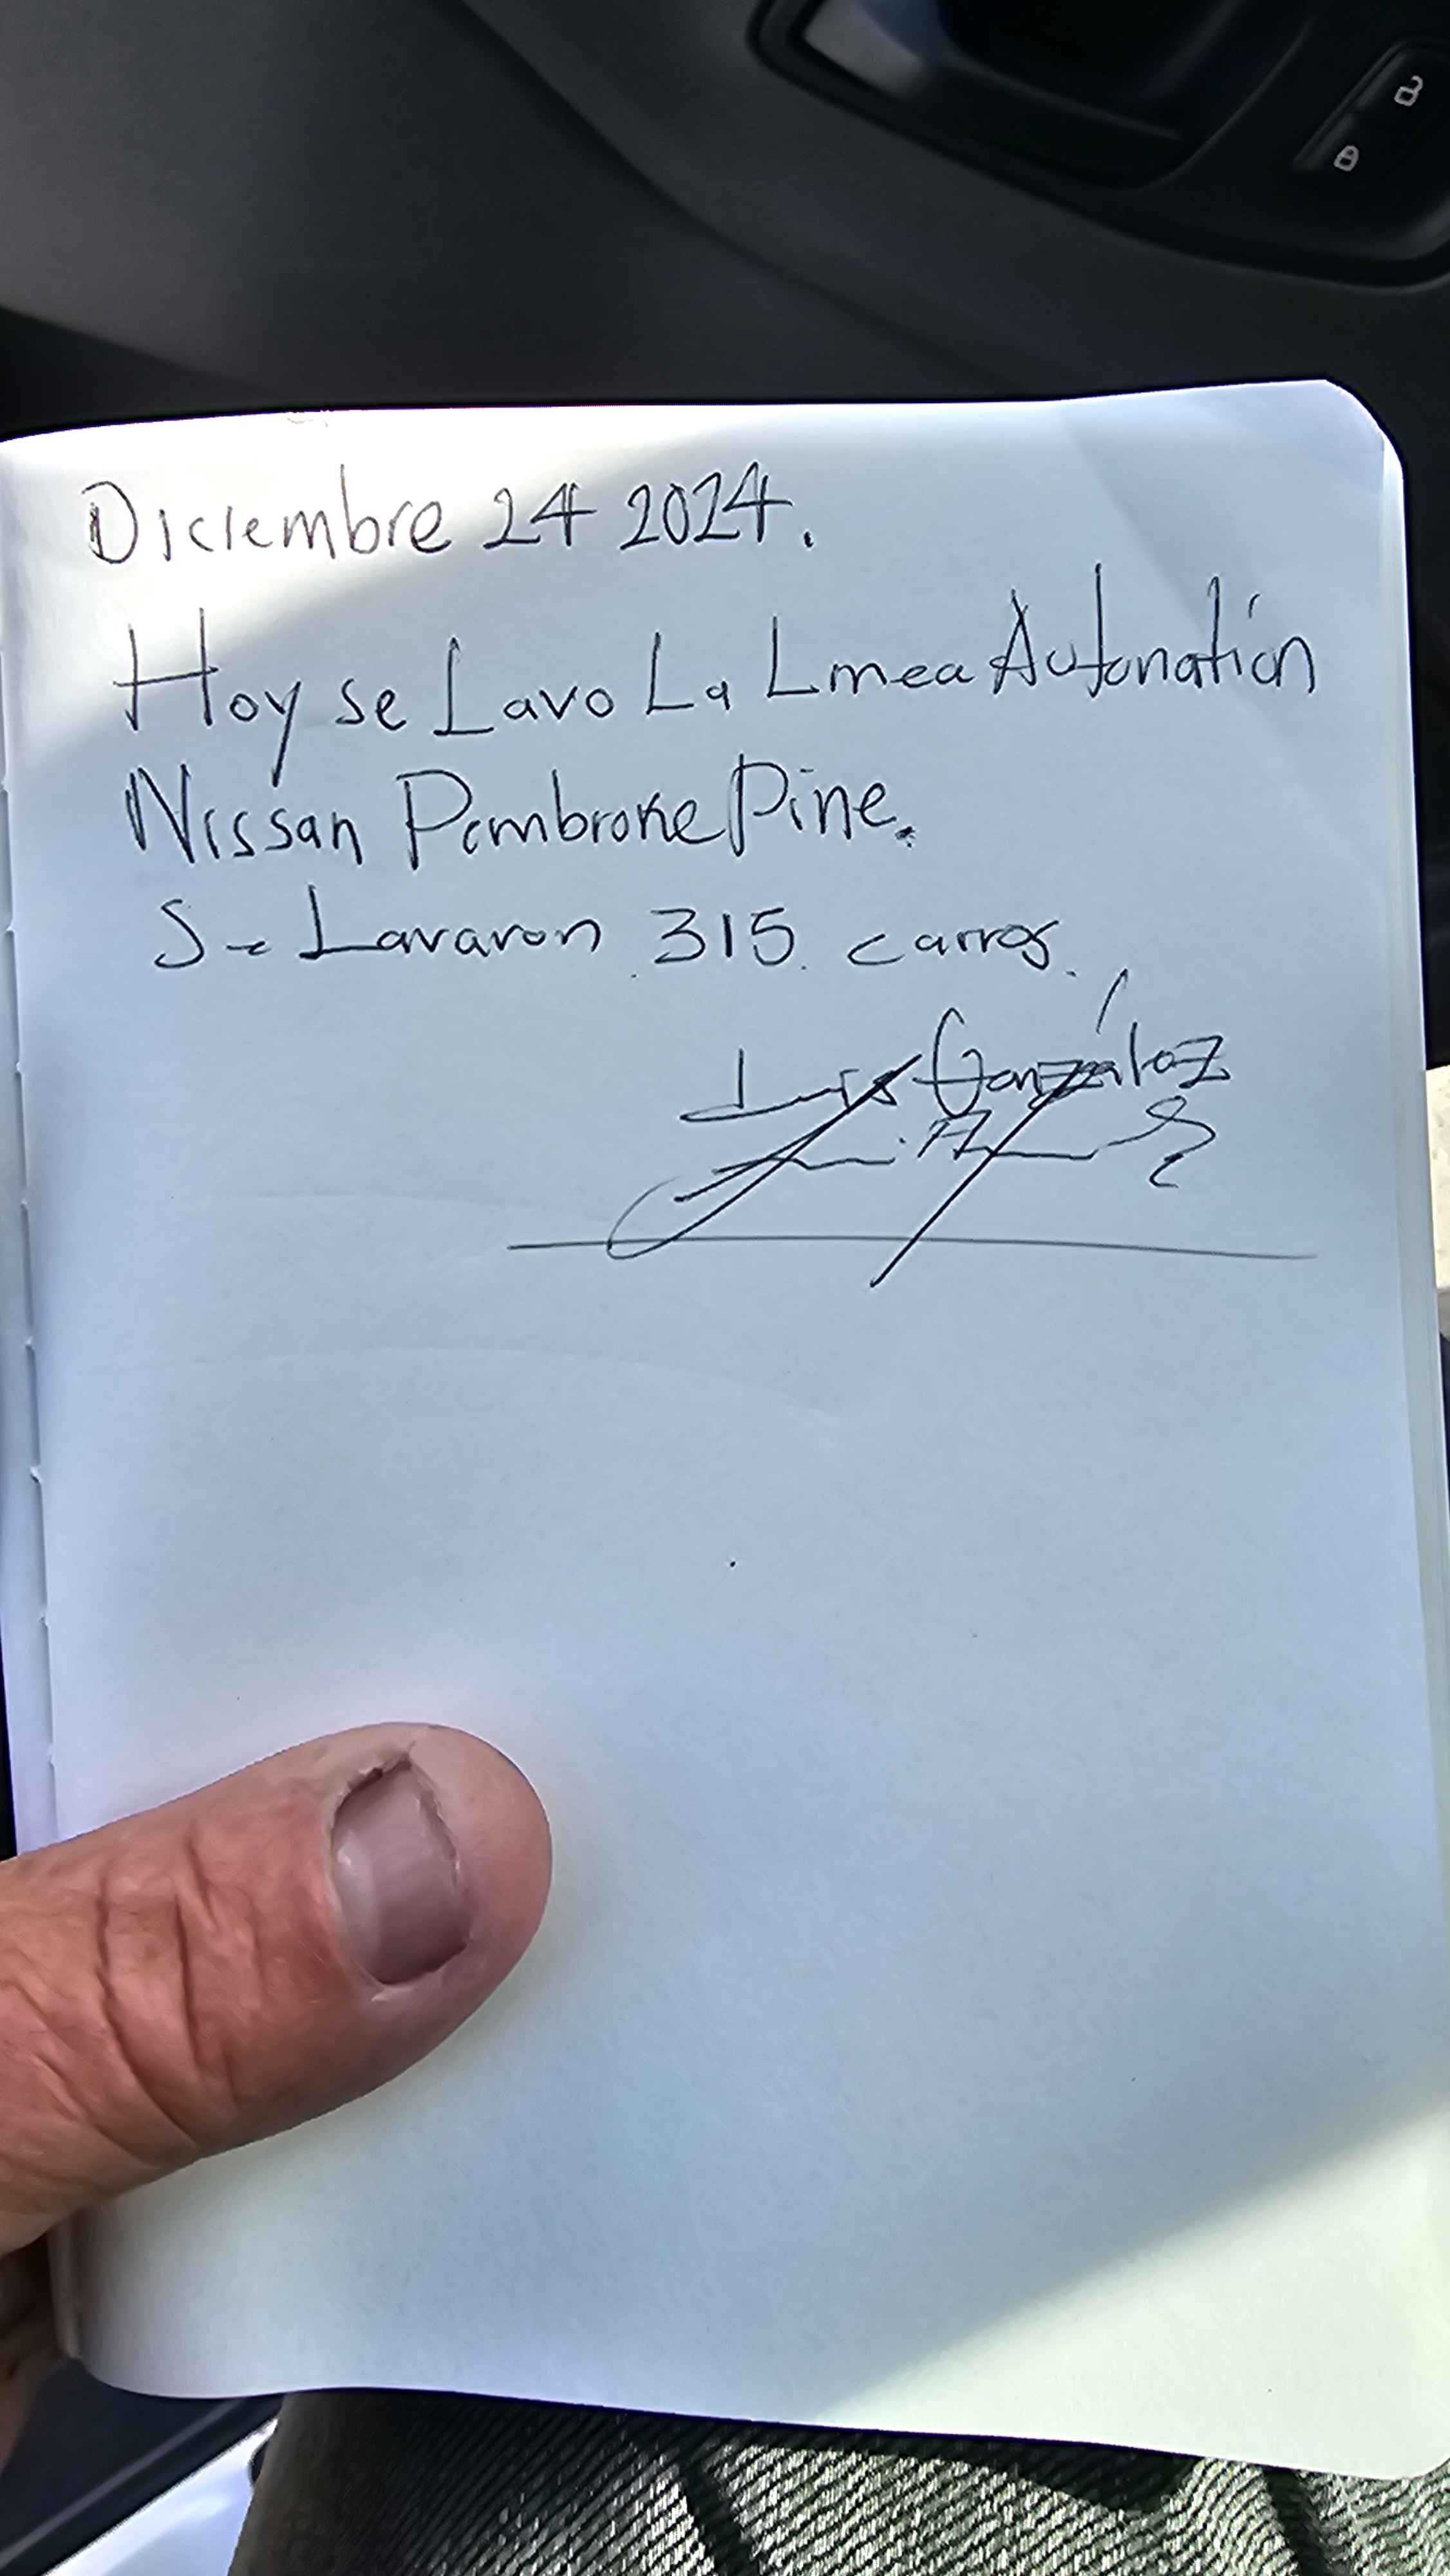 Diciembre 24 2024.
Hoy se Lavo La Linea Autonatión
Nissan Pembroke Pine.
Se Lavaron 315 carros.
Luis González